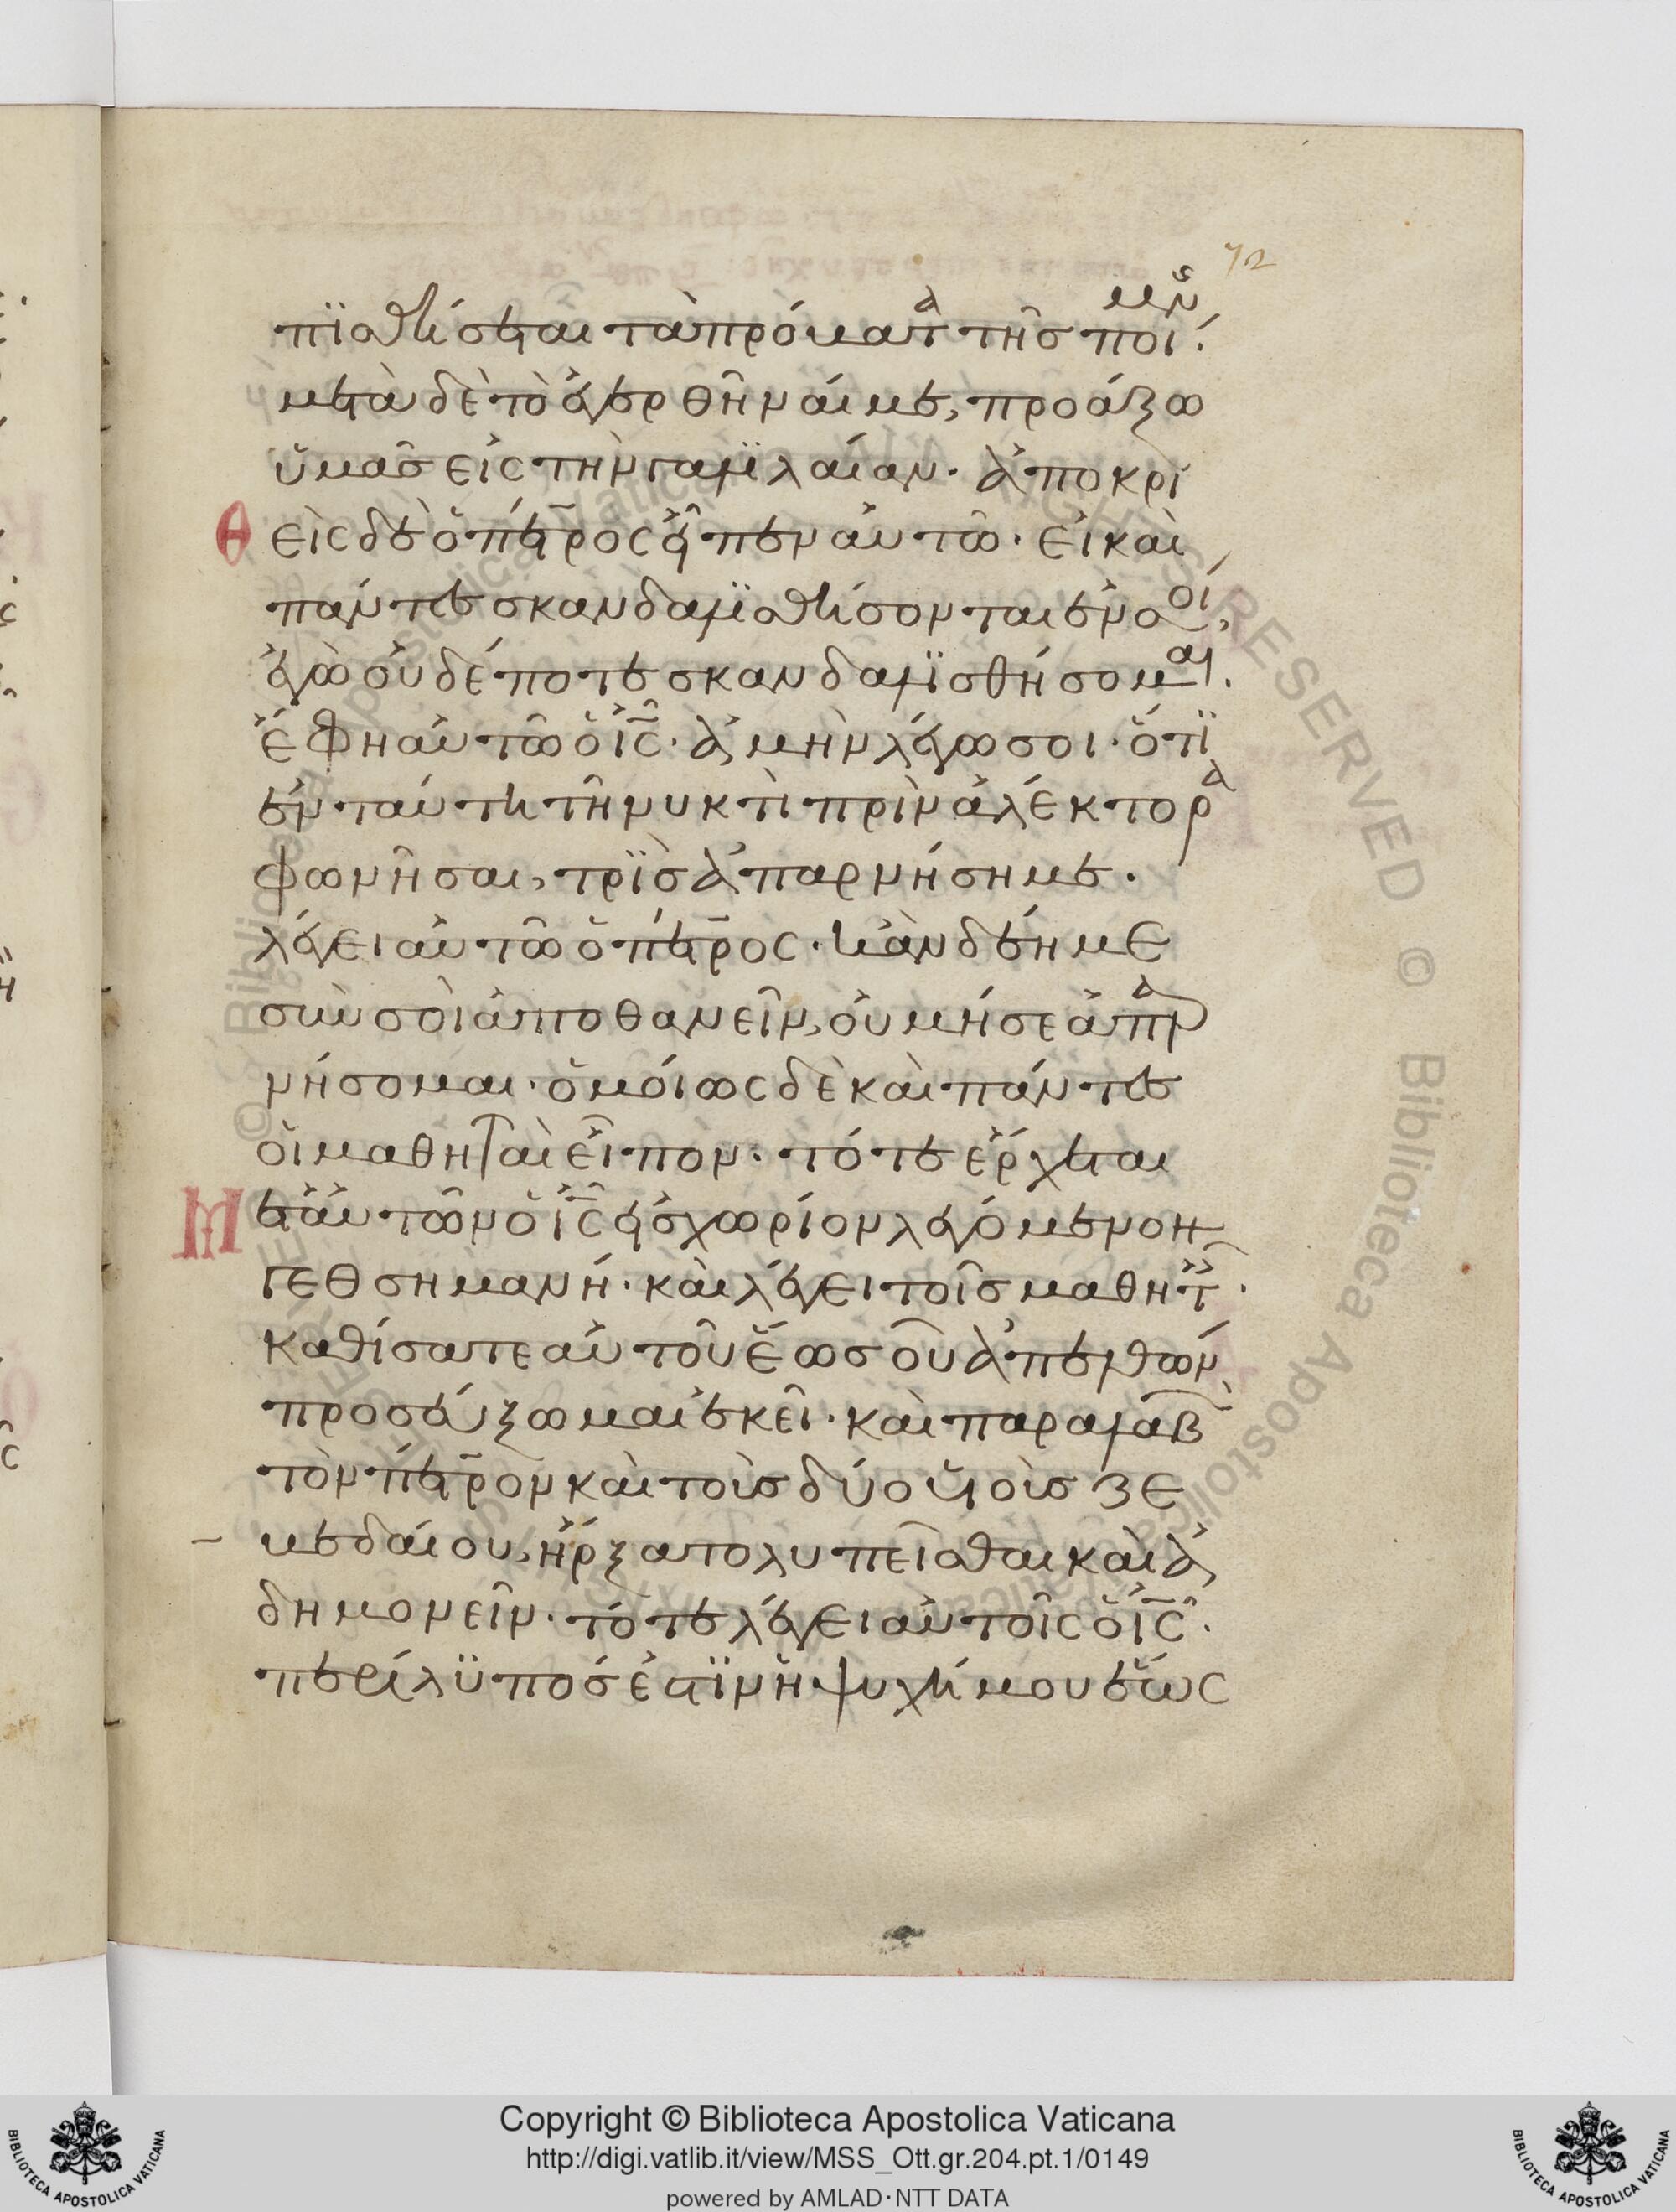 72
πϊσθήσεται τὰ πρόβατ(α) τῆς ποίμν(ης).
μετὰ δὲ τὸ ἐγερθῆναί με, προάξω
ὑμᾶς εἰς τὴν γαλϊλαίαν. ἀποκρι
θεὶς δὲ ὁ πέτρος εἶπεν αὐτῶ. εἰ καὶ
πάντες σκανδαλϊσθήσονται ἐν σοί,
ἐγὼ οὐδέποτε σκανδαλϊσθήσομαι.
ἔφη αὐτῶ ὁ ἰ̅ς̅. ἀμὴν λέγω σοι. ὅτϊ
ἐν ταύτη τῆ νυκτὶ πρὶν ἀλέκτορα
φωνῆσαι, τρϊς ἀπαρνήση με.
λέγει αὐτῶ ὁ πέτρος. κἂν δέη με
σὺν σοὶ ἀποθανεῖν, οὐ μή σε ἀπαρ
νήσομαι. ὁμοίως δὲ καὶ πάντες
οἱ μαθηταὶ εἶπον. τότε ἔρχεται
Μετ' αὐτῶν ὁ ἰ̅ς̅ εἰς χωρίον λεγόμενον
γεθσημανή. καὶ λέγει τοῖς μαθητ.
καθίσατε αὐτοῦ ἕως οὗ ἀπελθὼν
προσεύξωμαι ἐκεῖ. καὶ παραλαβ(ὼν)
τὸν πέτρον καὶ τοὺς δύο υἱοὺς ζε
βεδαίου, ἤρξατο λυπεῖσθαι καὶ ἀ
δημονεῖν. τότε λέγει αὐτοῖς ὁ ἰ̅ς̅.
περίλϋπός ἐστϊν ἡ ψυχή μου ἕως
Copyright © Biblioteca Apostolica Vaticana
http://digi.vatlib.it/view/MSS_Ott.gr.204.pt.1/0149
powered by AMLAD·NTT DATA